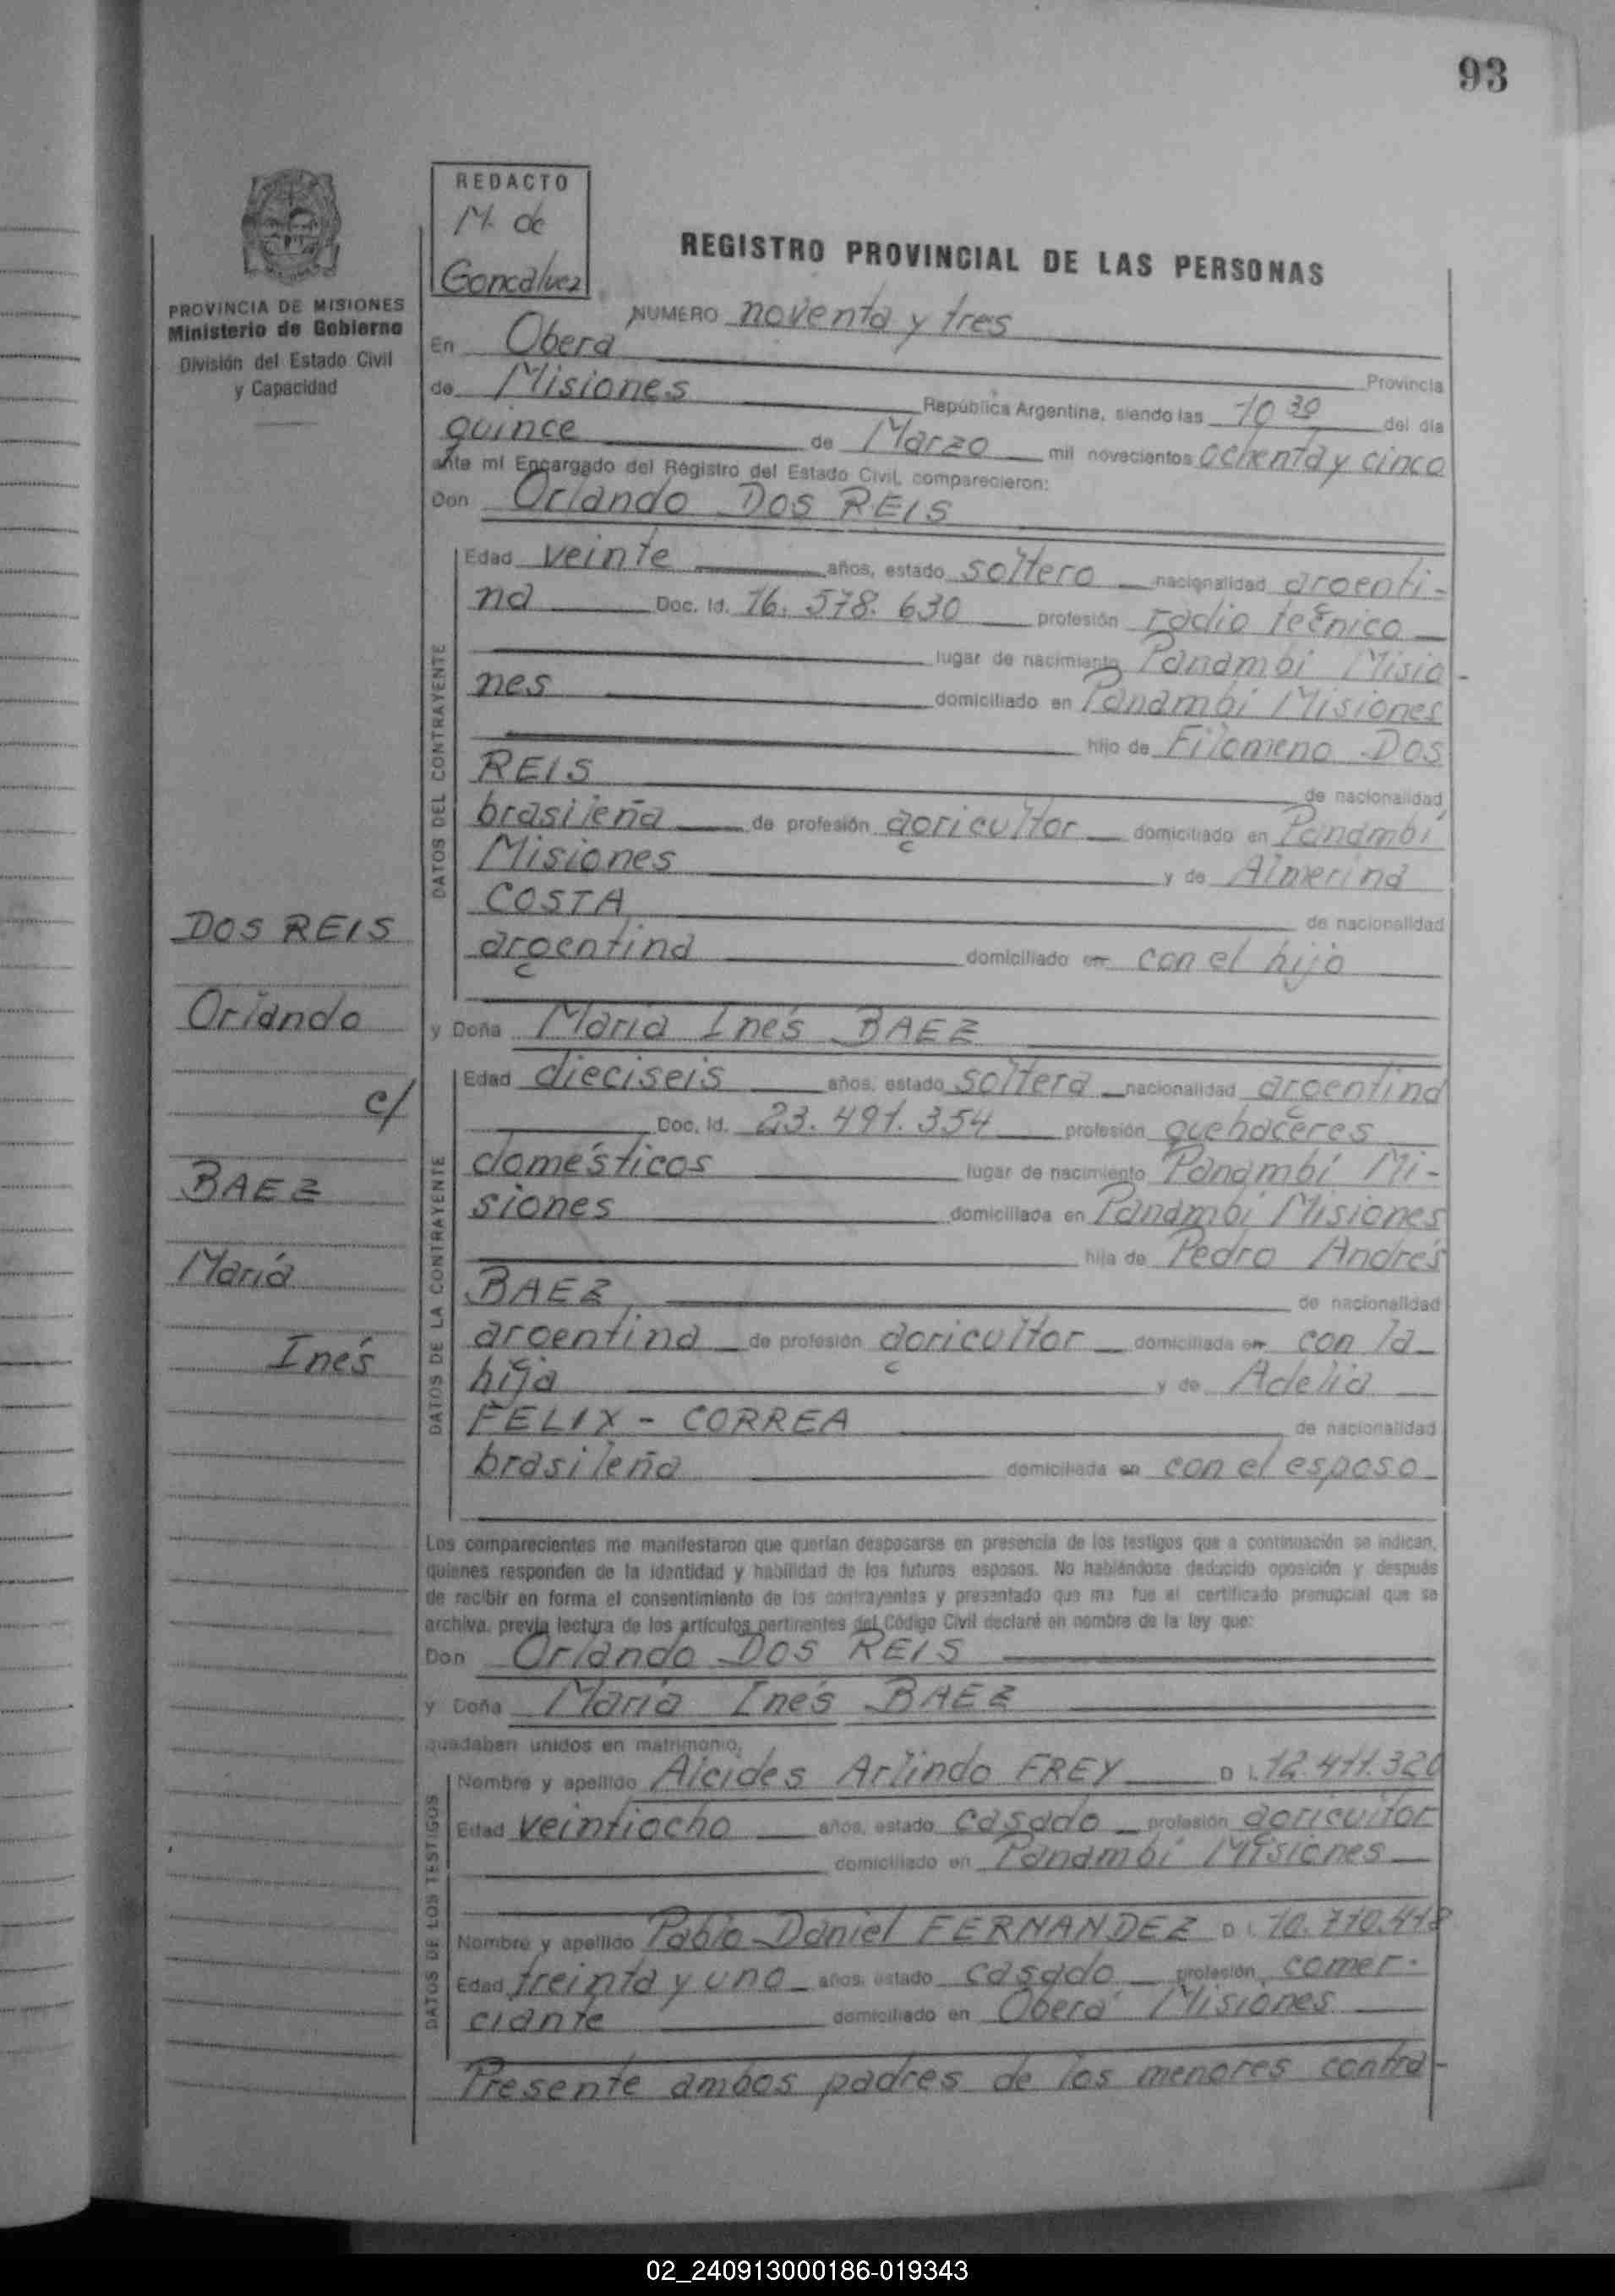 93
REDACTO
M. de
Goncalvez
REGISTRO PROVINCIAL DE LAS PERSONAS
PROVINCIA DE MISIONES
Ministerio de Gobierno
División del Estado Civil
y Capacidad
NUMERO noventa y tres
En Oberá
Provincia
de Misiones República Argentina, siendo las 10 30 del día
quince de Marzo mil novecientos ochenta y cinco
ante mí Encargado del Registro del Estado Civil, comparecieron:
Don Orlando DOS REIS
DATOS DEL CONTRAYENTE
Edad veinte años, estado soltero nacionalidad argenti-
na Doc. Id. 16.578.630 profesión radio técnico
lugar de nacimiento Panambí Misio-
nes domiciliado en Panambí Misiones
hijo de Filomeno DOS
REIS de nacionalidad
brasileña de profesión agricultor domiciliado en Panambí
Misiones y de Almerina
COSTA de nacionalidad
argentina domiciliado en con el hijo
DOS REIS
Orlando
c/
BAEZ
María
Inés
y Doña María Inés BAEZ
DATOS DE LA CONTRAYENTE
Edad dieciseis años, estado soltera nacionalidad argentina
Doc. Id. 23.491.354 profesión quehaceres
domésticos lugar de nacimiento Panambí Mi-
siones domiciliada en Panambí Misiones
hija de Pedro Andrés
BAEZ de nacionalidad
argentina de profesión agricultor domiciliada en con la
hija y de Adelia
FELIX - CORREA de nacionalidad
brasileña domiciliada en con el esposo
Los comparecientes me manifestaron que querían desposarse en presencia de los testigos que a continuación se indican,
quienes responden de la identidad y habilidad de los futuros esposos. No habiéndose deducido oposición y después
de recibir en forma el consentimiento de los contrayentes y presentado que me fue el certificado prenupcial que se
archiva, previa lectura de los artículos pertinentes del Código Civil declaré en nombre de la ley que:
Don Orlando DOS REIS
y Doña María Inés BAEZ
quedaban unidos en matrimonio,
DATOS DE LOS TESTIGOS
Nombre y apellido Alcides Arlindo FREY D I. 12.411.320
Edad veintiocho años, estado casado profesión agricultor
domiciliado en Panambí Misiones
Nombre y apellido Pablo Daniel FERNANDEZ D I. 10.770.418
Edad treinta y uno años, estado casado profesión comer-
ciante domiciliado en Oberá Misiones
Presente ambos padres de los menores contra-
02_240913000186-019343